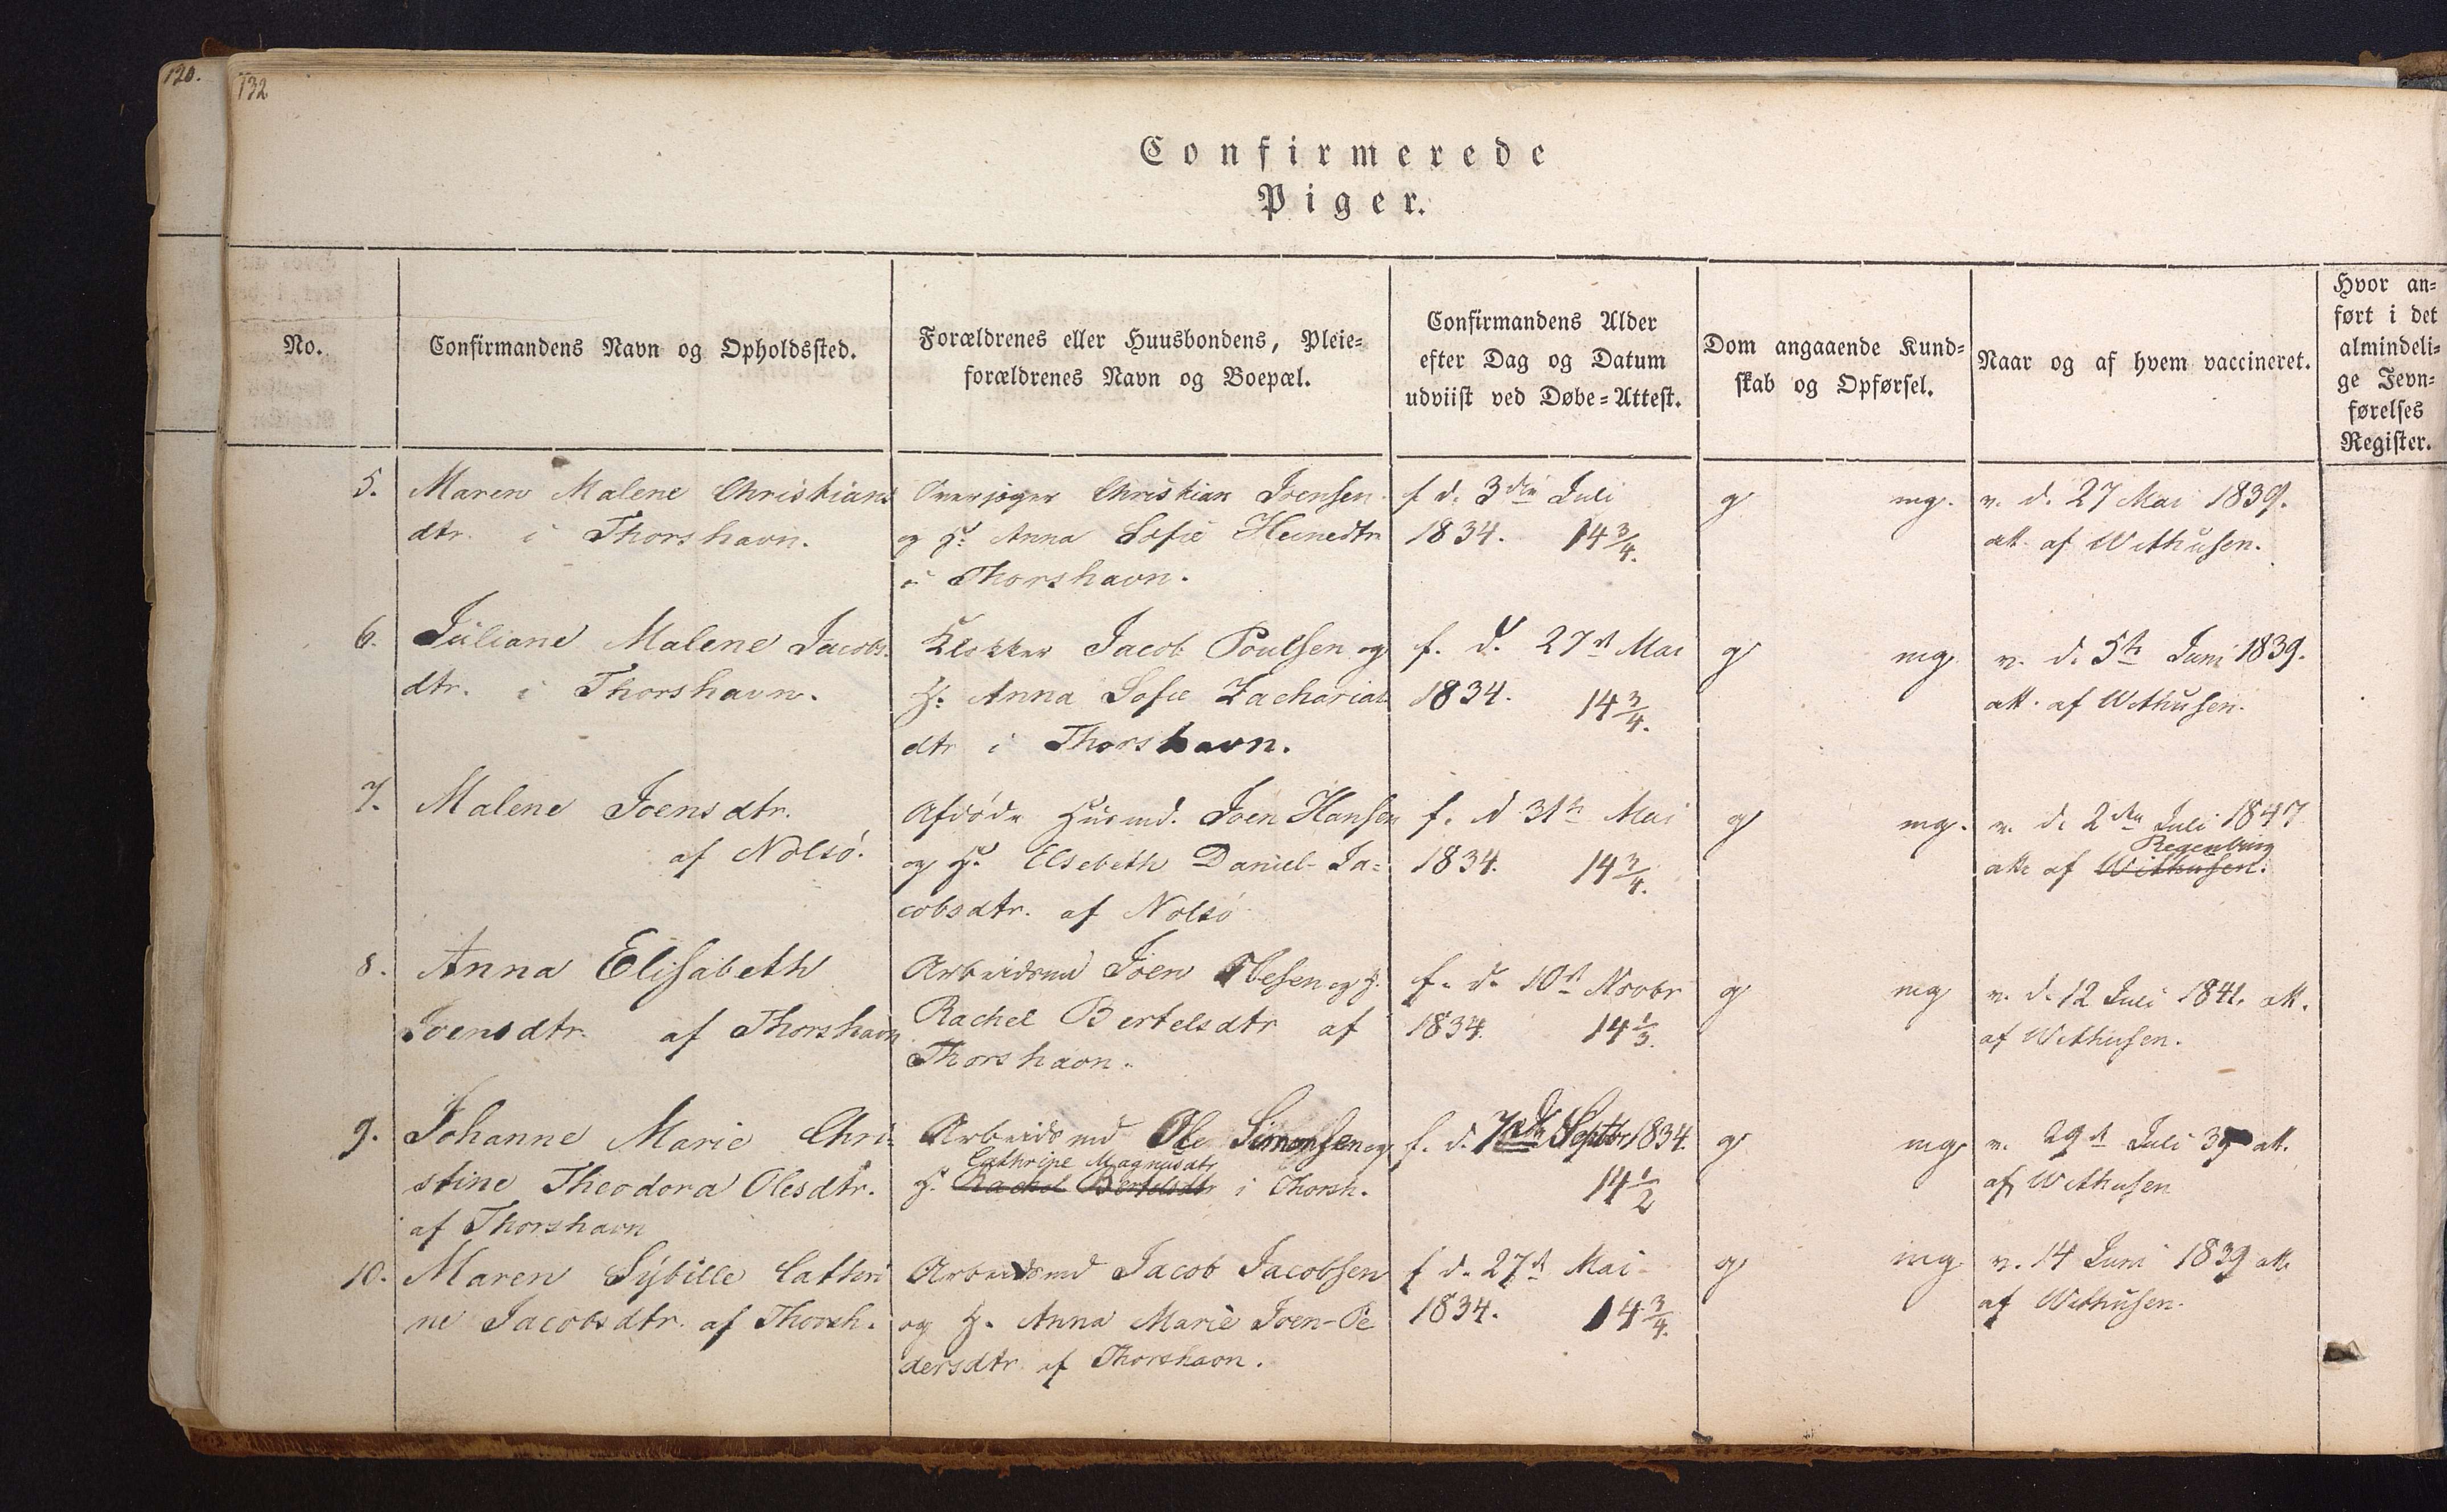 120.
132
Confirmerede
Piger.
No.
Confirmandens Navn og Opholdssted.
Forældrenes eller Huusbondens, Pleie-
forældrenes Navn og Boepæl.
Confirmandens Alder
efter Dag og Datum
udviist ved Døbe-Attest.
Dom angaaende Kund-
skab og Opførsel.
Naar og af hvem vaccineret.
Hvor an-
ført i det
almindeli-
ge Jevn-
førelses
Register.
5.
Maren Malene Christians
dtr. i Thorshavn.
Christian Joensen
og H: Anna Sofie Heinedtr
i Thorshavn.
f d. 3die Juli
1834. 14 3/4.
g mg.
v. d. 27 Mai 1839.
att. af Withusen.
6.
Juliane Malene Jacobs.
dtr. i Thorshavn.
Klokker Jacob Poulsen og
H: Anna Sofie Zacharias
dtr i Thorshavn.
f. d. 27d Mai
1834. 14 3/4.
g mg
v. d. 5te Juni 1839.
att. af Withusen.
7.
Malene Joensdtr.
af Nolsö.
Afdöde Husmd. Joen Hansen
og H. Elsebeth Daniel-Ja-
cobsdtr. af Nolsö
f. d 31te Mai
1834. 14 3/4.
g mg.
v. d. 2den Juli 1847
Regenburg
att. af Withusen.
8.
Anna Elisabeth
Joensdtr. af Thorshavn
Arbeidsmd Joen og H.
Rachel Bertelsdtr af
Thorshavn.
f. d. 10d Novbr
1834. 14 1/3.
g mg
v. d. 12 Juli 1841. att.
af Withusen.
9.
Johanne Marie Chri-
stine Theodora Olesdtr.
af Thorshavn
Arbeidsmd Ole Simonsen og
Cathrine Magnusdtr
H. Rachel Bertelsdtr i Thorsh.
f. d. 7de Septbr 1834.
14 1/2
g mg
v. 29d Juli 39 att.
af Withusen
10.
Maren Sybille Cathri
ne Jacobsdtr. af Thorsh.
Arbeidsmd Jacob Jacobsen
og H. Anna Marie Joen-Pe
dersdtr af Thorshavn.
f d. 27d Mai
1834. 14 3/4.
g mg
v. 14 Juni 1839 att.
af Withusen.